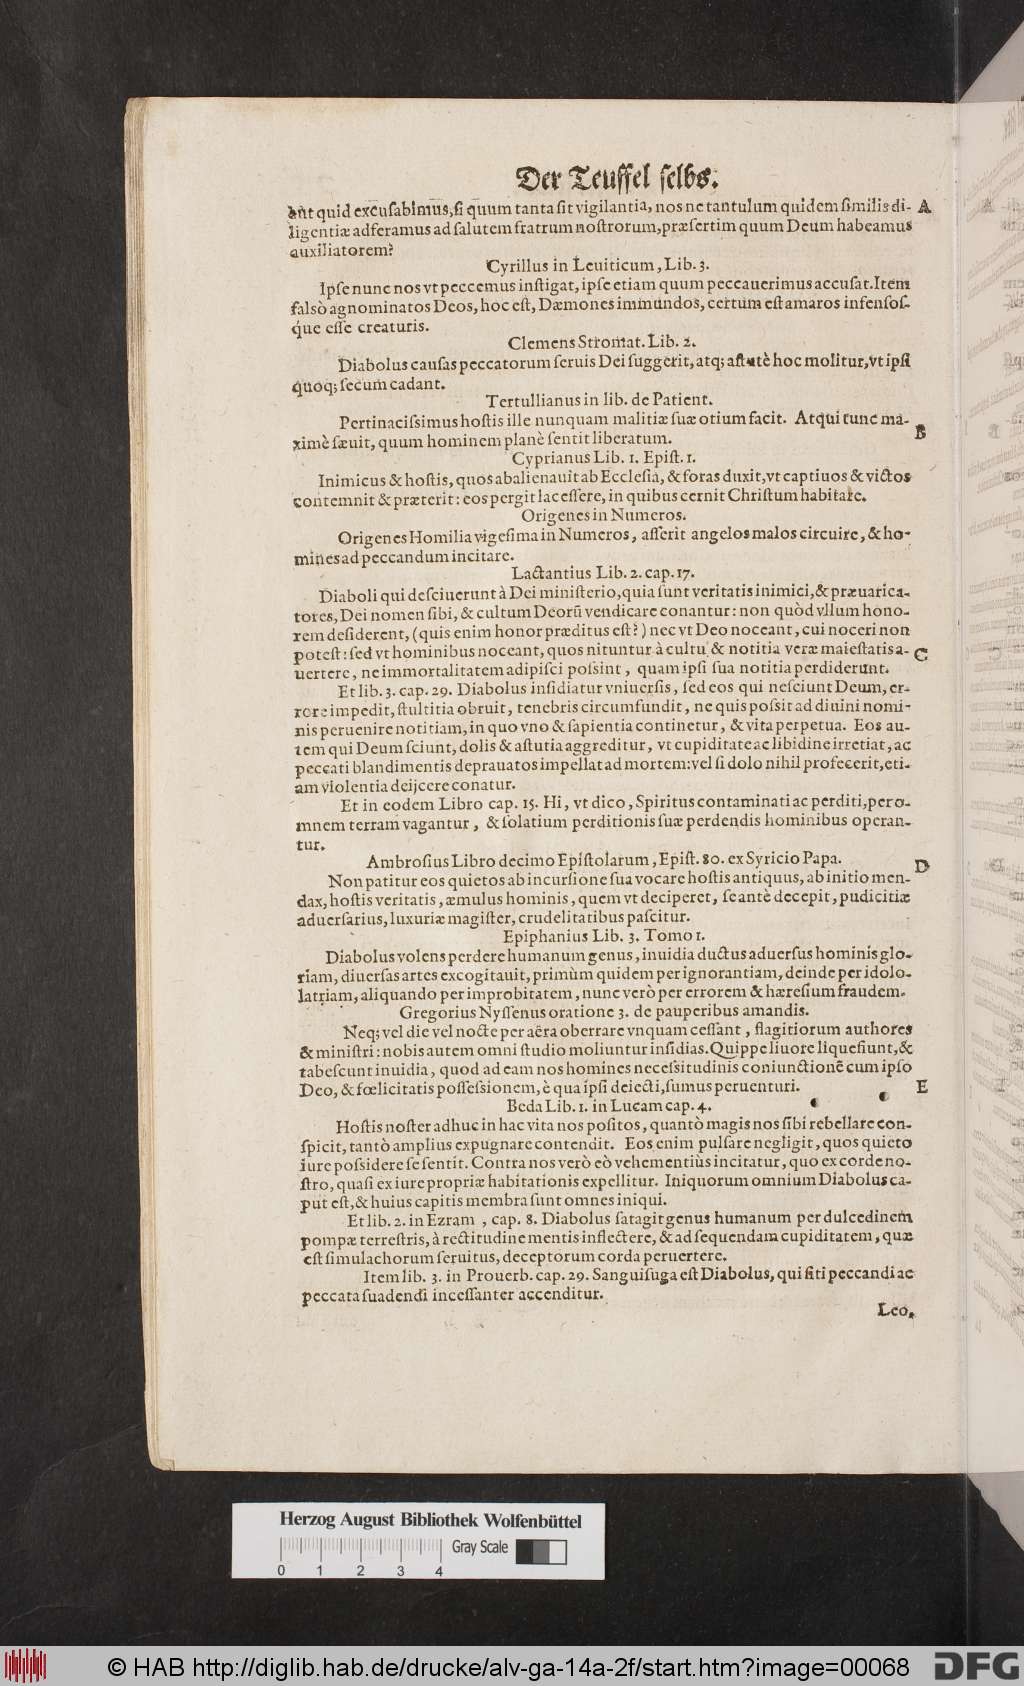 Der Teuffel selbs.
aut quid excusabimus, si quum tanta sit vigilantia, nos ne tantulum quidem similis di- A
ligentiæ adferamus ad salutem fratrum nostrorum, præsertim quum Deum habeamus
auxiliatorem?
Cyrillus in Leuiticum, Lib. 3.
Ipse nunc nos vt peccemus instigat, ipse etiam quum peccauerimus accusat. Item
falsò agnominatos Deos, hoc est, Dæmones immundos, certum est amaros infensos-
q́ue esse creaturis.
Clemens Stromat. Lib. 2.
Diabolus causas peccatorum seruis Dei suggerit, atq; astutè hoc molitur, vt ipsi
quoq; secum cadant.
Tertullianus in lib. de Patient.
Pertinacissimus hostis ille nunquam malitiæ suæ otium facit. Atqui tunc ma-
ximè sæuit, quum hominem planè sentit liberatum. B
Cyprianus Lib. 1. Epist. 1.
Inimicus & hostis, quos abalienauit ab Ecclesia, & foras duxit, vt captiuos & victos
contemnit & præterit: eos pergit lacessere, in quibus cernit Christum habitare.
Origenes in Numeros.
Origenes Homilia vigesima in Numeros, asserit angelos malos circuire, & ho-
mines ad peccandum incitare.
Lactantius Lib. 2. cap. 17.
Diaboli qui desciuerunt à Dei ministerio, quia sunt veritatis inimici, & præuarica-
tores, Dei nomen sibi, & cultum Deorũ vendicare conantur: non quòd vllum hono-
rem desiderent, (quis enim honor præditus est?) nec vt Deo noceant, cui noceri non
potest: sed vt hominibus noceant, quos nituntur à cultu & notitia veræ maiestatis a- C
uertere, ne immortalitatem adipisci possint, quam ipsi sua notitia perdiderunt.
Et lib. 3. cap. 29. Diabolus insidiatur vniuersis, sed eos qui nesciunt Deum, er-
rore impedit, stultitia obruit, tenebris circumfundit, ne quis possit ad diuini nomi-
nis peruenire notitiam, in quo vno & sapientia continetur, & vita perpetua. Eos au-
tem qui Deum sciunt, dolis & astutia aggreditur, vt cupiditate ac libidine irretiat, ac
peccati blandimentis deprauatos impellat ad mortem: vel si dolo nihil profecerit, eti-
am violentia deijcere conatur.
Et in eodem Libro cap. 15. Hi, vt dico, Spiritus contaminati ac perditi, per o-
mnem terram vagantur, & solatium perditionis suæ perdendis hominibus operan-
tur.
Ambrosius Libro decimo Epistolarum, Epist. 80. ex Syricio Papa. D
Non patitur eos quietos ab incursione sua vocare hostis antiquus, ab initio men-
dax, hostis veritatis, æmulus hominis, quem vt deciperet, se antè decepit, pudicitiæ
aduersarius, luxuriæ magister, crudelitatibus pascitur.
Epiphanius Lib. 3. Tomo 1.
Diabolus volens perdere humanum genus, inuidia ductus aduersus hominis glo-
riam, diuersas artes excogitauit, primùm quidem per ignorantiam, deinde per idolo-
latriam, aliquando per improbitatem, nunc verò per errorem & hæresium fraudem.
Gregorius Nyssenus oratione 3. de pauperibus amandis.
Neq; vel die vel nocte per aëra oberrare vnquam cessant, flagitiorum authores
& ministri: nobis autem omni studio moliuntur insidias. Quippe liuore liquefiunt, &
tabescunt inuidia, quod ad eam nos homines necessitudinis coniunctionẽ cum ipso
Deo, & fœlicitatis possessionem, è qua ipsi deiecti, sumus peruenturi. E
Beda Lib. 1. in Lucam cap. 4.
Hostis noster adhuc in hac vita nos positos, quantò magis nos sibi rebellare con-
spicit, tantò amplius expugnare contendit. Eos enim pulsare negligit, quos quieto
iure possidere se sentit. Contra nos verò eò vehementiùs incitatur, quo ex corde no-
stro, quasi ex iure propriæ habitationis expellitur. Iniquorum omnium Diabolus ca-
put est, & huius capitis membra sunt omnes iniqui.
Et lib. 2. in Ezram, cap. 8. Diabolus satagit genus humanum per dulcedinem
pompæ terrestris, à rectitudine mentis inflectere, & ad sequendam cupiditatem, quæ
est simulachorum seruitus, deceptorum corda peruertere.
Item lib. 3. in Prouerb. cap. 29. Sanguisuga est Diabolus, qui siti peccandi ac
peccata suadendi incessanter accenditur.
Leo.
Herzog August Bibliothek Wolfenbüttel
Gray Scale
0 1 2 3 4
© HAB http://diglib.hab.de/drucke/alv-ga-14a-2f/start.htm?image=00068 DFG